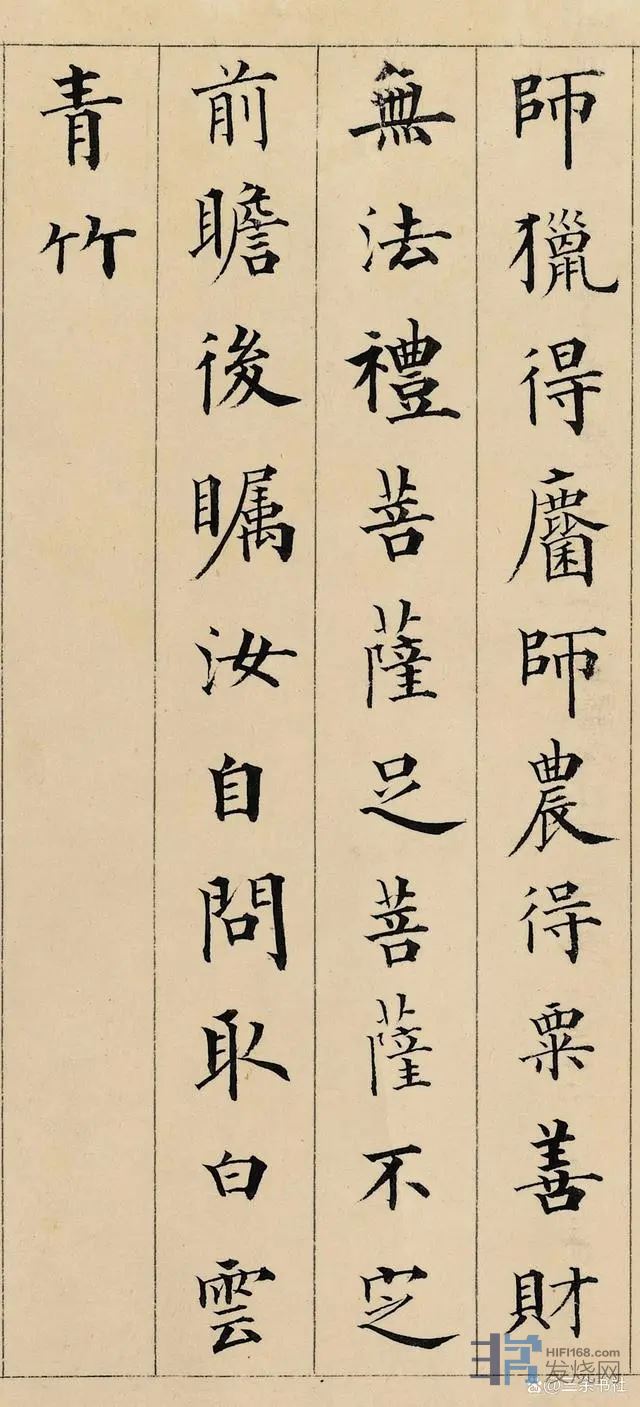 師獵得麕師農得粟善財
無法禮菩薩足菩薩不定
前瞻後矚汝自問取白雲
青竹
HIFI168.com
发烧网
余书社